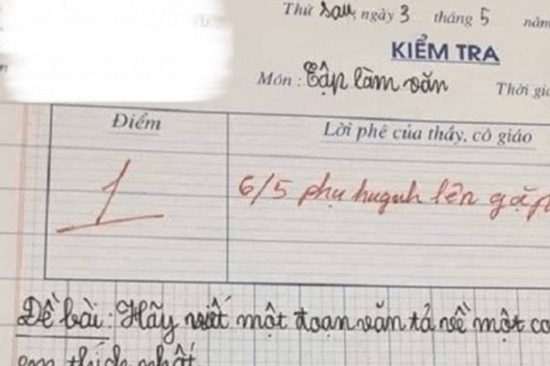 Thứ sáu, ngày 3 tháng 5 năm
KIỂM TRA
Môn: Tập làm văn Thời gia
Điểm Lời phê của thầy, cô giáo
1 6/5 phụ huynh lên gặp
Đề bài: Hãy viết một đoạn văn tả về một co
em thích nhất.